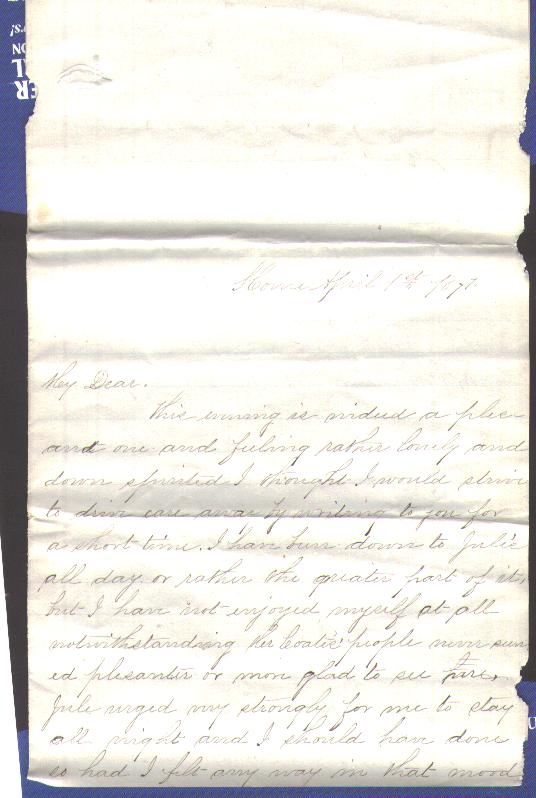 Home April 1st 1877
My Dear.
This evening is indeed a ples-
ant one and feeling rather lonely and
down spirited I thought I would strive
to drive care away by writing to you for
a short time. I have been down to Julie
all day or rather the greater part of it,
but I have not enjoyed myself at all
notwithstanding the people never seem
ed plesanter or more glad to see
Jule urged very strongly for me to stay
all night and I should have done
so had I felt any way in that mood